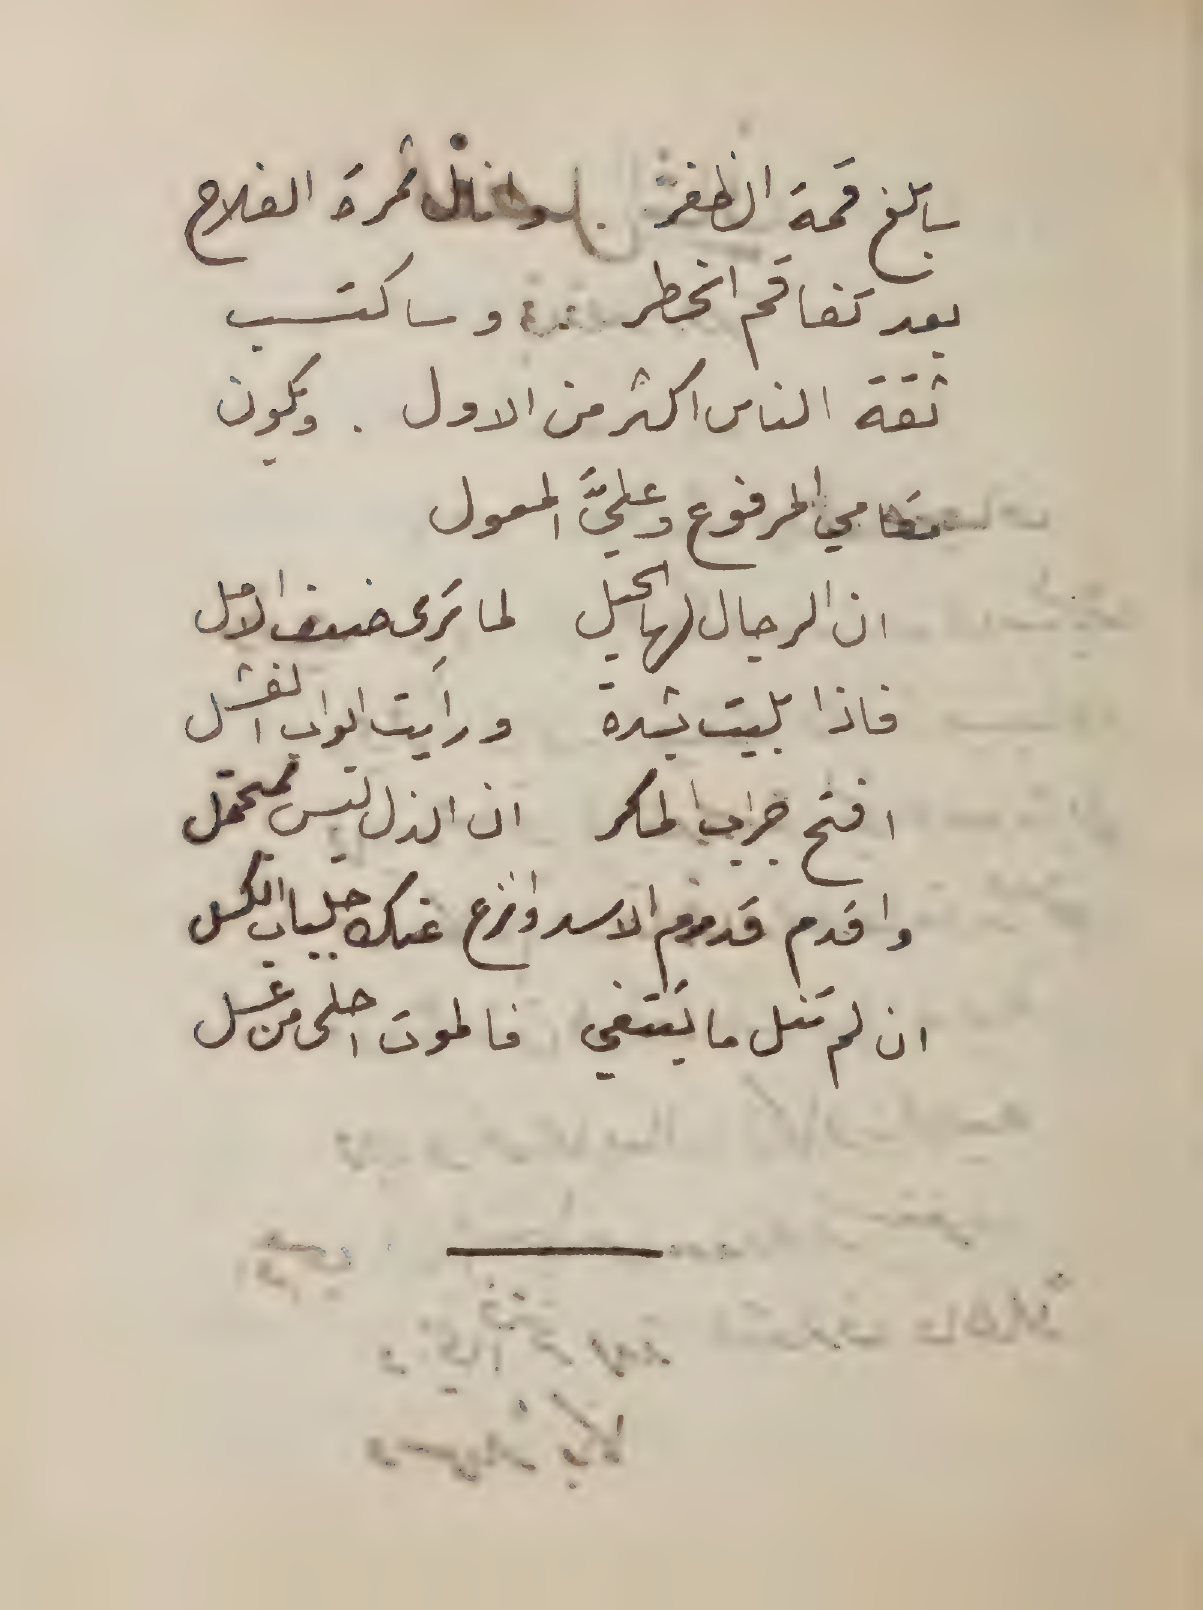 سابلغ قمة الظفر وانال ثمرة الفلاح
بعد تفاقم الخطر وساكتسب
ثقة الناس اكثر من الاول . ويكون
مقامي المرفوع وعليَّ المعول
ان الرجال لها الحيل لما ترى ضعف الامل
فاذا بليت بشدة ورأيت ابواب الفشل
افتح جراب المكر ان الذل ليس بمحتمل
واقدم قدوم الاسد وانزع عنك جلباب الكسل
ان لم تنل ما يبتغى فالموت احلى من عسل